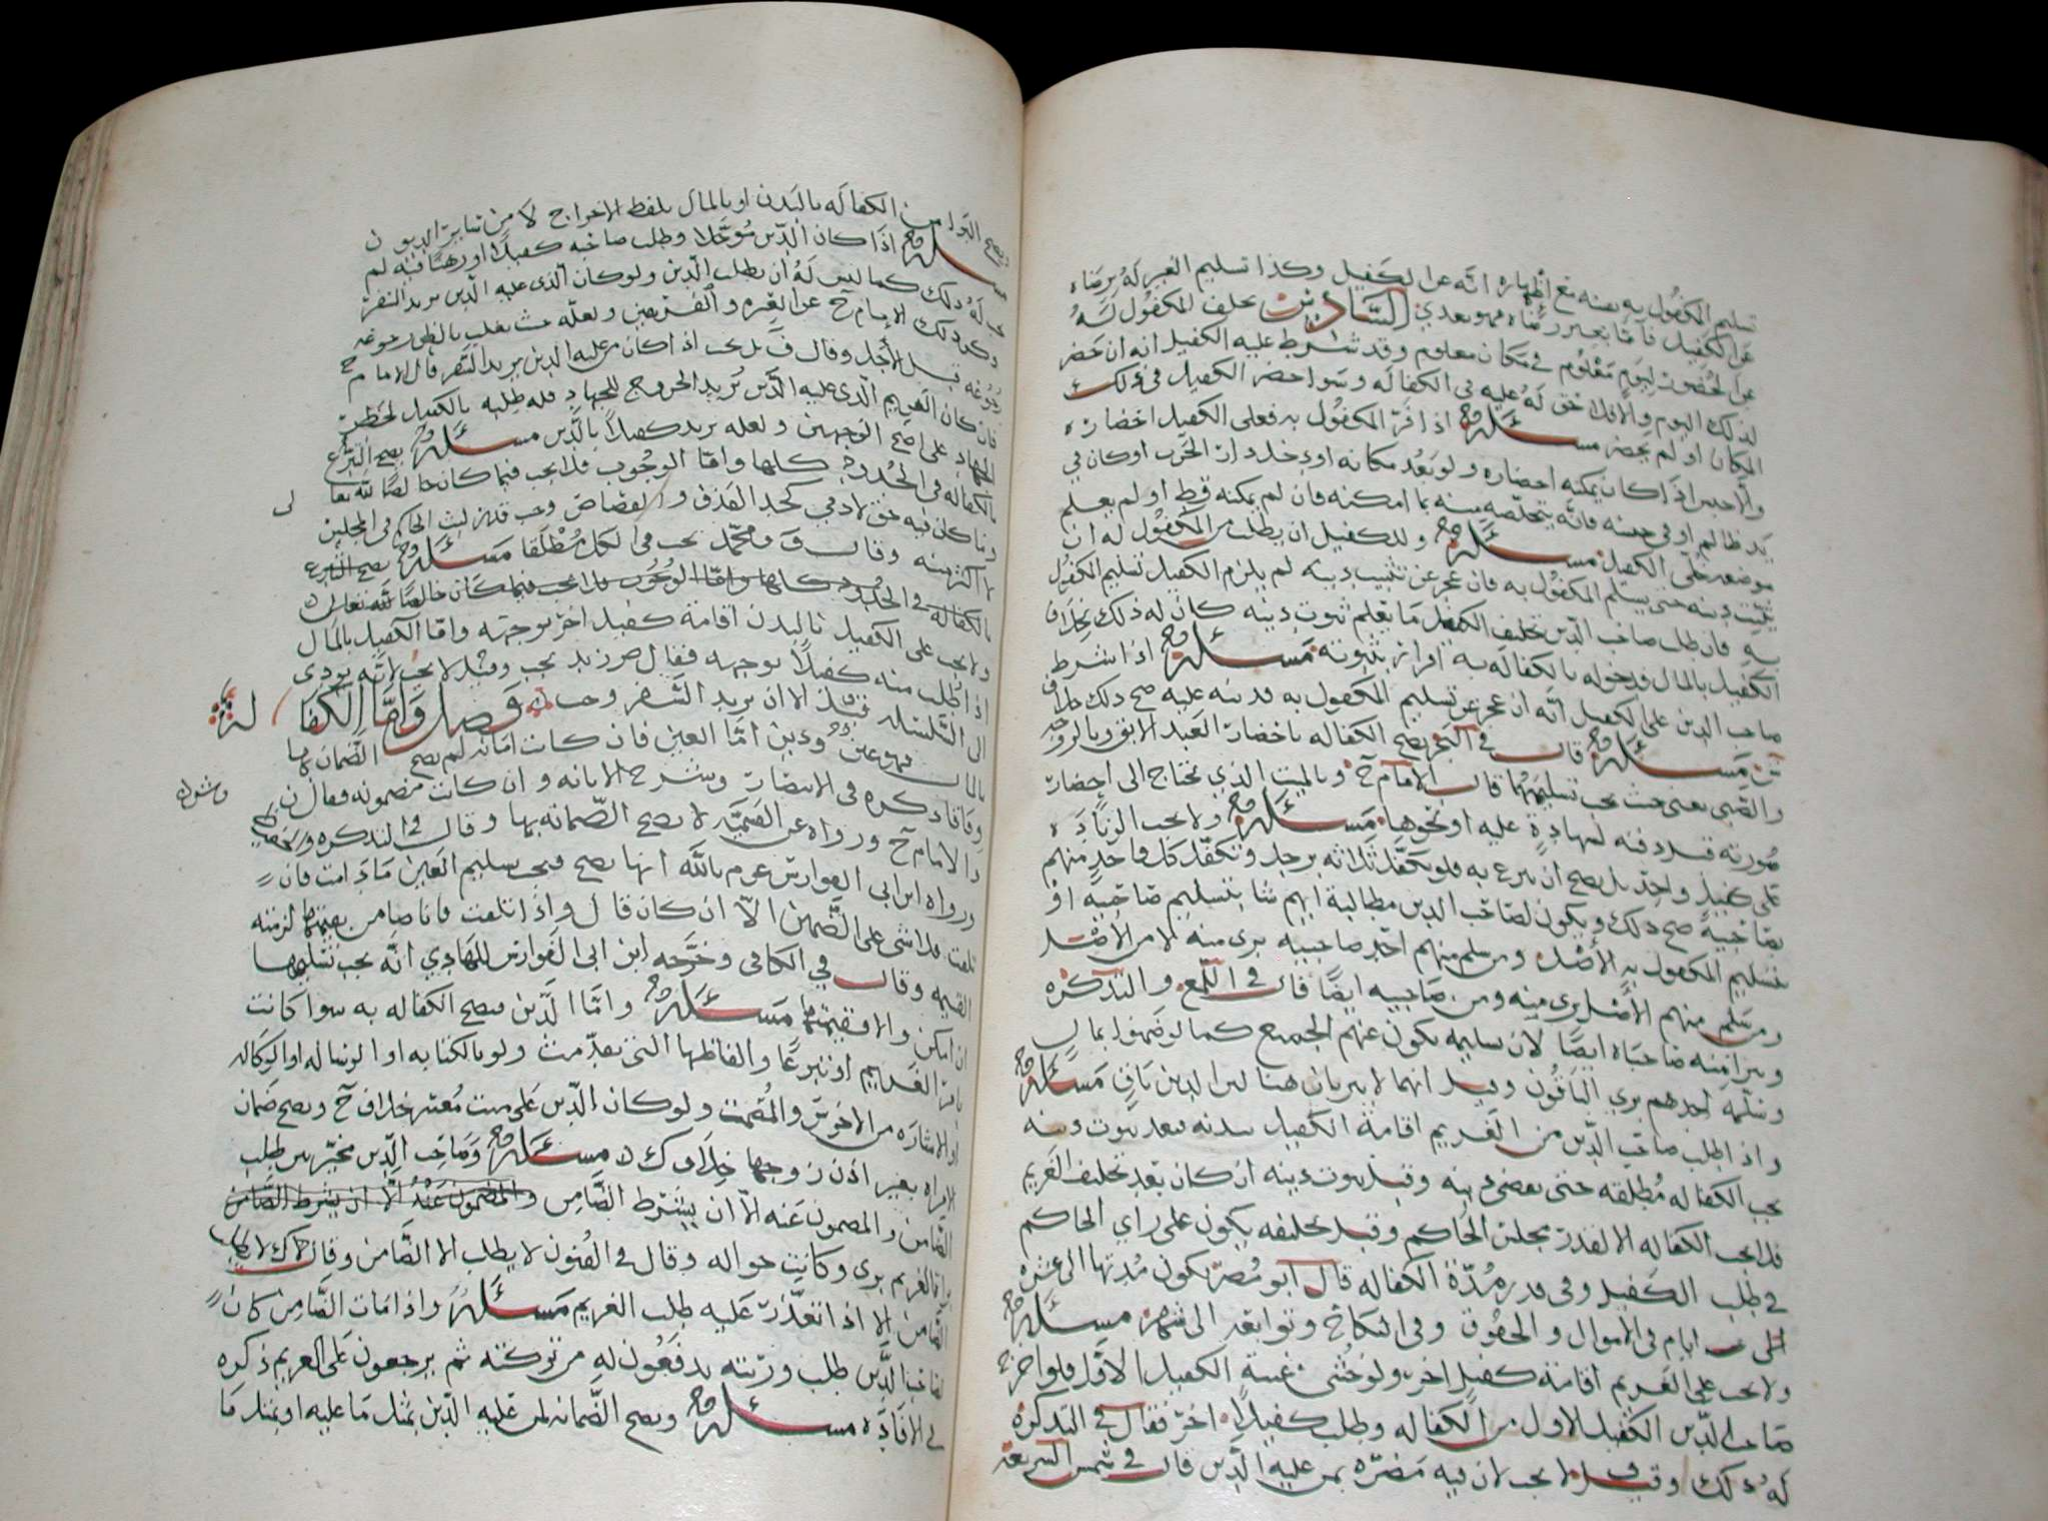 تسليم المكفول به نفسه مع اظهاره انه عن الكفيل وكذا تسليم الغير له برضاه
عن الكفيل فاما بغير رضاه فهو بعدي السادس يحلف المكفول له
عن الحضور ليوم معلوم في مكان معلوم وقد شرط عليه الكفيل انه ان حضر
لذلك اليوم والا فلا حق له عليه في الكفاله وسوا حضر الكفيل في ذلك
المكان او لم يحضر مسئلة اذا فر المكفول به فعلى الكفيل احضاره
والا حبس اذا كان يمكنه احضاره ولو بعد مكانه او دخل دار الحرب او كان في
يد ظالم او في حبسه فانه يتخلصه منه بما امكنه فان لم يمكنه قط او لم يعلم
موضعه خلي الكفيل مسئلة وللكفيل ان يطلب من المكفول له ان
يثبت دينه حتى يسلم المكفول به فان عجز عن تثبيت دينه لم يلزم الكفيل تسليم المكفول
به فان طلب صاحب الدين تحليف الكفيل ما يعلم ثبوت دينه كان له ذلك بخلاف
الكفيل بالمال فدخوله بالكفاله به اقرار بثبوته مسئلة اذا شرط
صاحب الدين على الكفيل انه ان عجز عن تسليم المكفول به فدينه عليه صح ذلك خلاف
ش مسئلة قال في البحر يصح الكفاله باحضار العبد الابق وبالزوجه
والصبي يعني حيث يجب تسليمهما قال الامام ح وبالميت الذي يحتاج الى احضار
صورته قبل دفنه لشهادة عليه او نحوها مسئلة ولا يجب الزيادة
على كفيل واحد بل يصح ان تبرع به فلو تكفل ثلاثه برجل وتكفل كل واحد منهم
بصاحبيه صح ذلك ويكون لصاحب الدين مطالبة ايهم شا بتسليم صاحبيه او
تسليم المكفول به الاصل ومن سلم منهم احد صاحبيه بري منه لا من الاصل
ومن سلم منهم الاصل بري منه ومن صاحبيه ايضا قال في اللمع والتذكره
ويبرا منه صاحباه ايضا لان تسليمه يكون عنهم الجميع كما لو ضمنوا بمال
وسلمه احدهم بري الباقون وقيل انهما لا يبريان هنا لان الدين باق مسئلة
واذا طلب صاحب الدين من الغريم اقامة الكفيل ببدنه فبعد ثبوت دينه
يجب الكفاله مطلقه حتى يقضي دينه وقبل ثبوت دينه ان كان بعد تحليف الغريم
فلا يجب الكفاله الا لقدر مجلس الحاكم وقبل تحليفه يكون على راي الحاكم
في طلب الكفيل وفي قدر مدة الكفاله قال ابو مضر يكون مدتها الى عشرة
ايام في الاموال والحقوق وفي النكاح وتوابعه الى شهر مسئلة
ولا يجب على الغريم اقامة كفيل اخر ولو خشي غيبة الكفيل الاول فلو اخرج
صاحب الدين الكفيل الاول من الكفاله وطلب كفيلا اخر فقال في التذكره
له ذلك وقيل لا يجب لان فيه مضره بمن عليه الدين قال في شمس الشريعه
ويصح البرا من الكفاله بالبدن او بالمال بلفظ الاخراج لا من سائر الديون
مسئلة اذا كان الدين موجلا وطلب صاحبه كفيلا او رهنا فيه لم
يجب له ذلك كما ليس له ان يطلب الدين ولو كان الذي عليه الدين يريد السفر
وكذا ذلك الامام ح عن العتره والفريقين ولعله حيث يغلب بالظن رجوعه
قبل الاجل وقال ف بل يجب اذا كان من عليه الدين يريد السفر قال الامام ح
فان كان الغريم الذي عليه الدين يريد الخروج للجهاد فله طلبه بالكفيل لخطر
الجهاد على اصح الوجهين ولعله يريد كفيلا بالدين مسئلة يصح التبرع
بالكفاله في الحدود كلها واما الوجوب فلا يجب فيما كان خالصا لله تعا لى
وما كان فيه حق لادمي كحد القذف والقصاص وجب قدر لبث الحاكم في المجلس
لا اكثر منه وقال ف ومحمد يجب في الكل مطلقا مسئلة يصح التبرع
بالكفاله في الحدود كلها واما الوجوب فلا يجب فيما كان خالصا لله تعالى
ولا يجب على الكفيل بالبدن اقامة كفيل اخر بوجهه واما الكفيل بالمال
اذا طلب منه كفيلا بوجهه فقال ص زيد يجب وقيل لا يجب لانه يودي
الى التسلسل قيل الا ان يريد السفر وجب فصل واما الكفاله
بالمال فهو عين ودين اما العين فان كانت امانه لم يصح الضمان بها
وفاقا ذكره في الانتصار وشرح الابانه وان كانت مضمونه فقال ن وش
والامام ح ورواه عن القسميه لا يصح الضمانه بها وقال في التذكره
ورواه ابن ابي الفوارس عن م بالله انها يصح فيجب تسليم العين ما دامت فان
تلفت فلا شي على الضمين الا ان كان قال واذا تلفت فانا ضامن بقيمتها لزمته
القيمه وقال في الكافي وخرجه ابن ابي الفوارس للهادي انه يجب تسليمها
ان امكن والا فقيمتها مسئلة واما الدين فيصح الكفاله به سوا كانت
بامر الغريم او تبرعا والفاظها التي تقدمت ولو بالكتابه او الرساله او الوكاله
او الاشاره من الاخرس والمصمت ولو كان الدين على ميت معسر خلاف ح ويصح ضمان
المراه بغير اذن زوجها خلاف ك مسئلة وصاحب الدين مخير بين طلب
الضامن والمضمون عنه الا ان يشترط الضامن والمضمون عنه الا ان يشرط الضامن
براة الغريم بري وكانت حواله وقال في الفنون لا يطلب الا الضامن وقال ك لا يطلب
الضامن الا اذا تعذرت عليه طلب الغريم مسئلة واذا مات الضامن كان
لصاحب الدين طلب ورثته يدفعون له من تركته ثم يرجعون على الغريم ذكره
في الافاده مسئلة ويصح الضمانه لمن عليه الدين بمثل ما عليه او بمثل ما